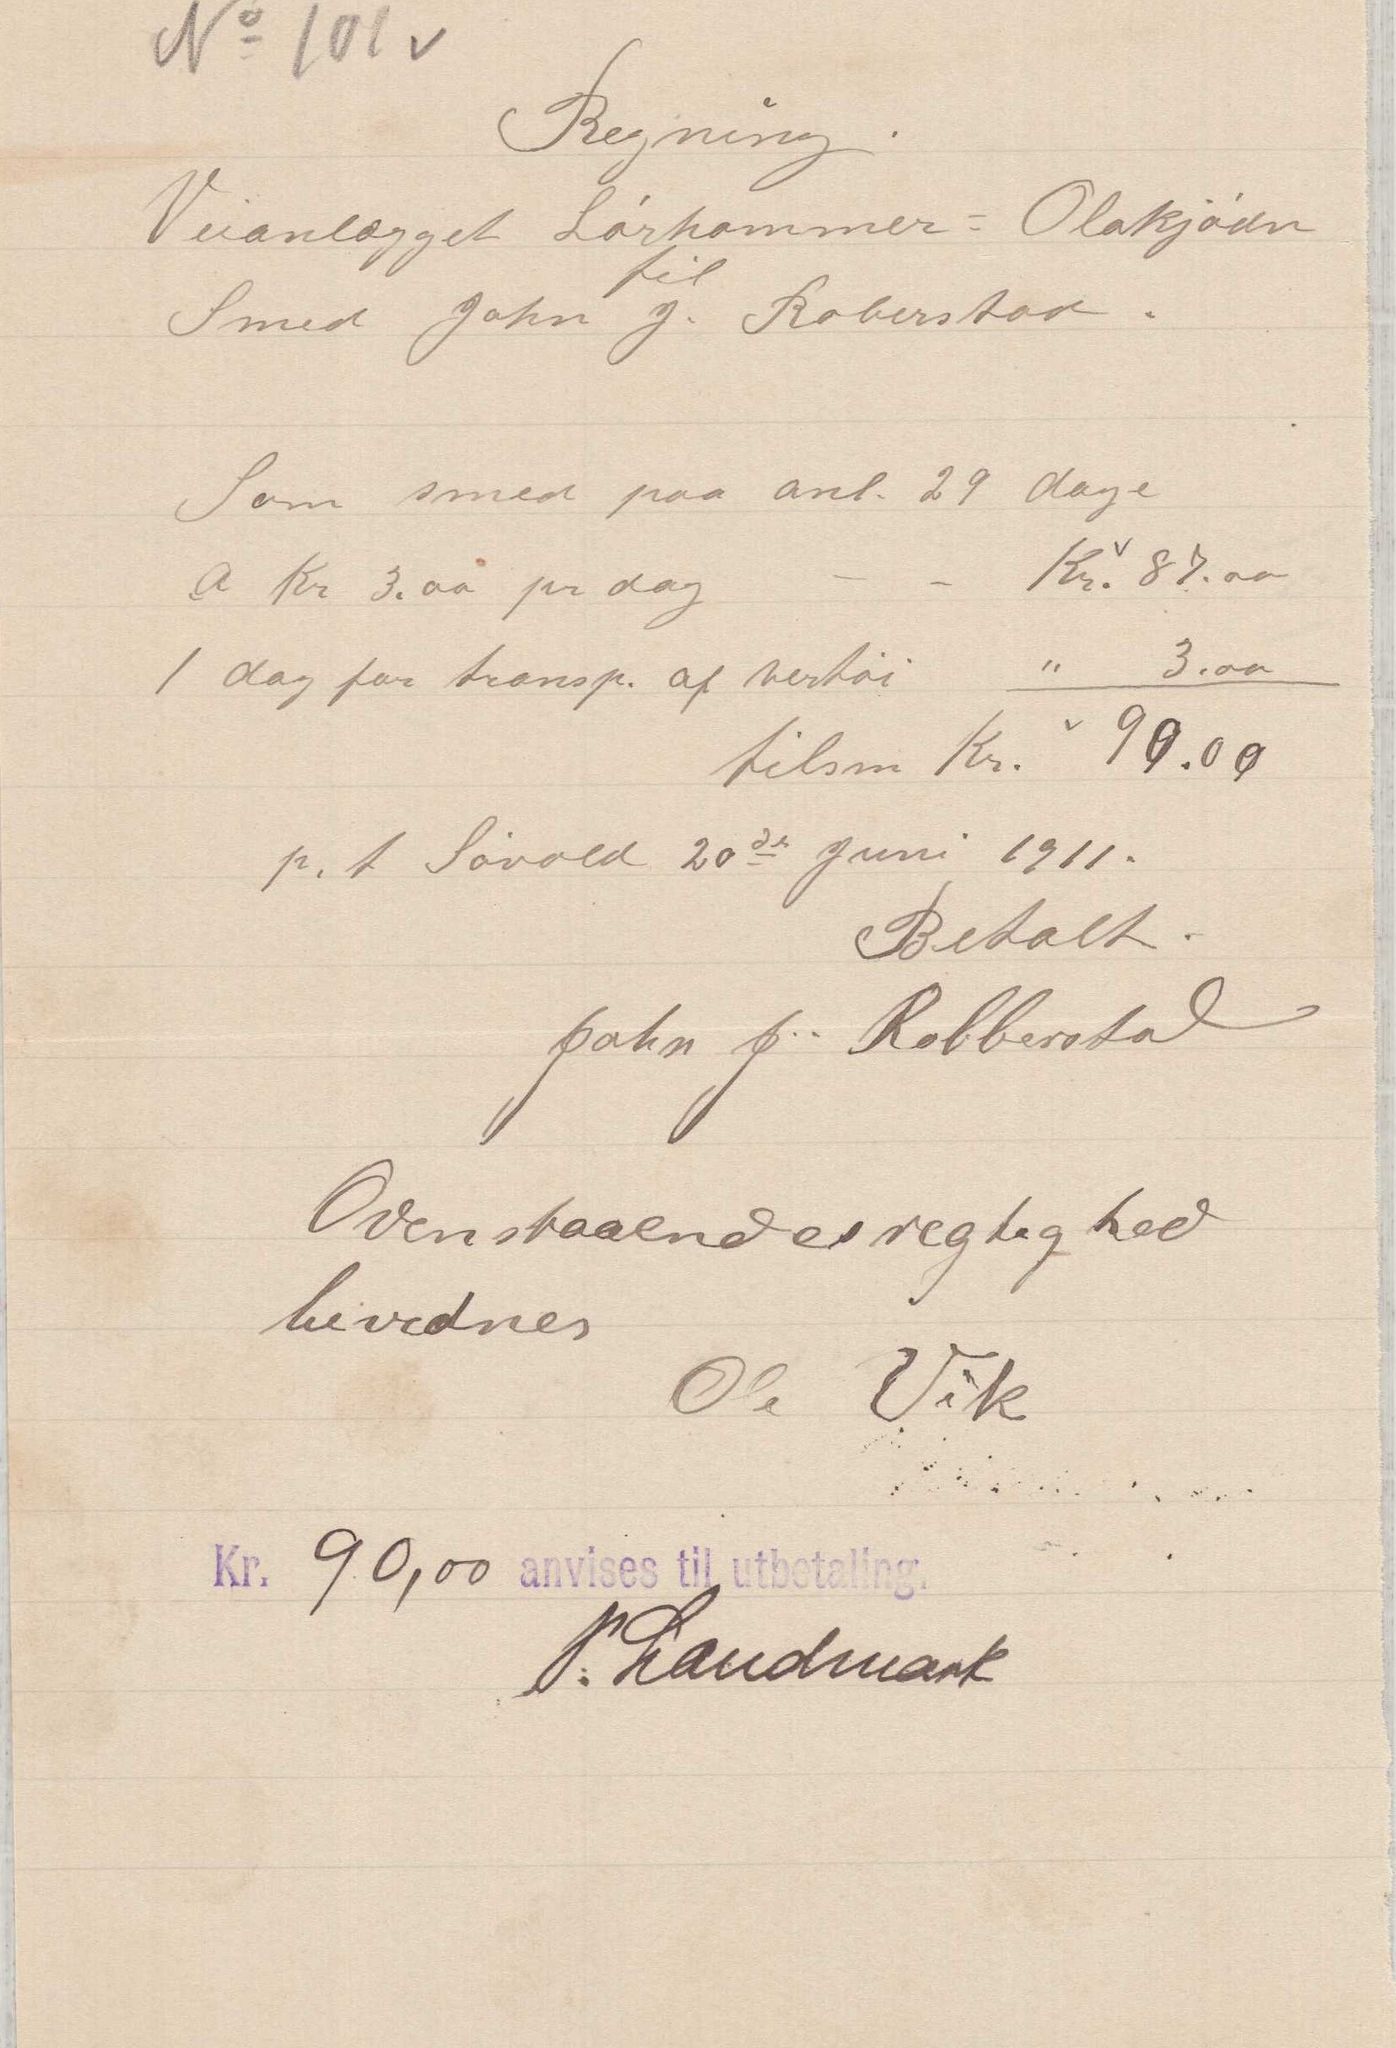 No 101 v
Regning.
Veianlægget Lórhammer = Olakjódn
til
Smed John J. Roberstad.
Som smed paa anl. 29 dage
a Kr 3.00 pr dag - - Kr. 87.00
1 dag for transp. af vertói " 3.00
tilsm Kr. 90.00
p. t Sóvold 20de Juni 1911.
Betalt.
John J. Robberstad
Ovenstaaendes regtighed
bevidnes
Ole Vik
Kr. 90,00 anvises til utbetaling.
P. Landmark